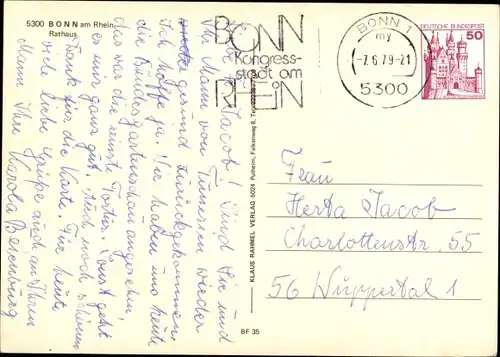 5300 BONN am Rhein
Rathaus
BONN
Kongress-
stadt am
RHEIN
BONN 1
my
-7.6.79-21
5300
DEUTSCHE BUNDESPOST
50
Jacob! Sind Sie und
Ihr Mann von Tunesien wieder
gesund zurückgekommen.
Ich hoffe ja. Wir haben uns heute
die Bundesgartenschau angesehen,
das war die reinste Tortur. Sonst geht
es mir ganz gut. Auch noch schönen
Dank für die Karte. Für heute
viele liebe Grüße auch an Ihren
Mann Ihre Karola
KLAUS RAHMEL VERLAG 5024 Pulheim, Falkenweg 8,
BF 35
Frau
Herta Jacob
Charlottenstr. 55
56 Wuppertal 1